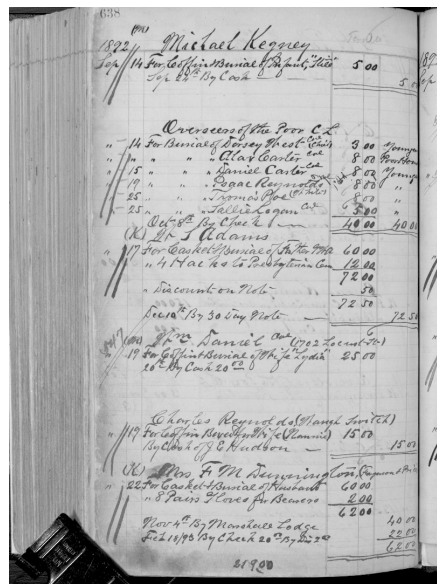 638
1892 Michael Kegney
Sep 14 For Coffin & Burial of Infant, "Still" 5 00
Sep 22nd By Cash 5 00
Overseers of the Poor C L
" 14 For Burial of Dorsey West Col (Child) 3 00 Young
" " " " " Carter Col 8 00
" 15 " " " Daniel Carter Col 8 00 Young
" 19 " " " Isaac Reynolds 8 00 "
" 25 " " " 8 00 "
" 25 " " " Sallie Logan Col 5 00 "
Oct 8th By Check 40 00 40 00
S Adams
" 17 For Casket & Burial of 60 00
" 4 Hacks to Presbyterian Cem 12 00
72 00
" Discount on Note 50
72 50
Dec 19th By 30 Day Note 72 50
Wm Daniel Col (702 Locust St)
" 19 For Coffin & Burial of Wife "Lydia" 25 00
20th By Cash 20 00
Charles Reynolds (Switch)
" 19 For Coffin Wife (Nannie) 15 00
By Cash of J E Hudson 15 00
Mrs F M Dunnington,
" 22 For Casket & Burial of Husband 60 00
" 8 Pairs Gloves for Bearers 2 00
62 00
Nov 4th By Marshall Lodge 40 00
Feb 18/93 By Check 22 00
62 00
21900